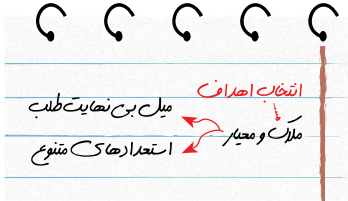 انتخاب اهداف
ملاک و معیار
میل بی نهایت طلب
استعدادهای متنوع